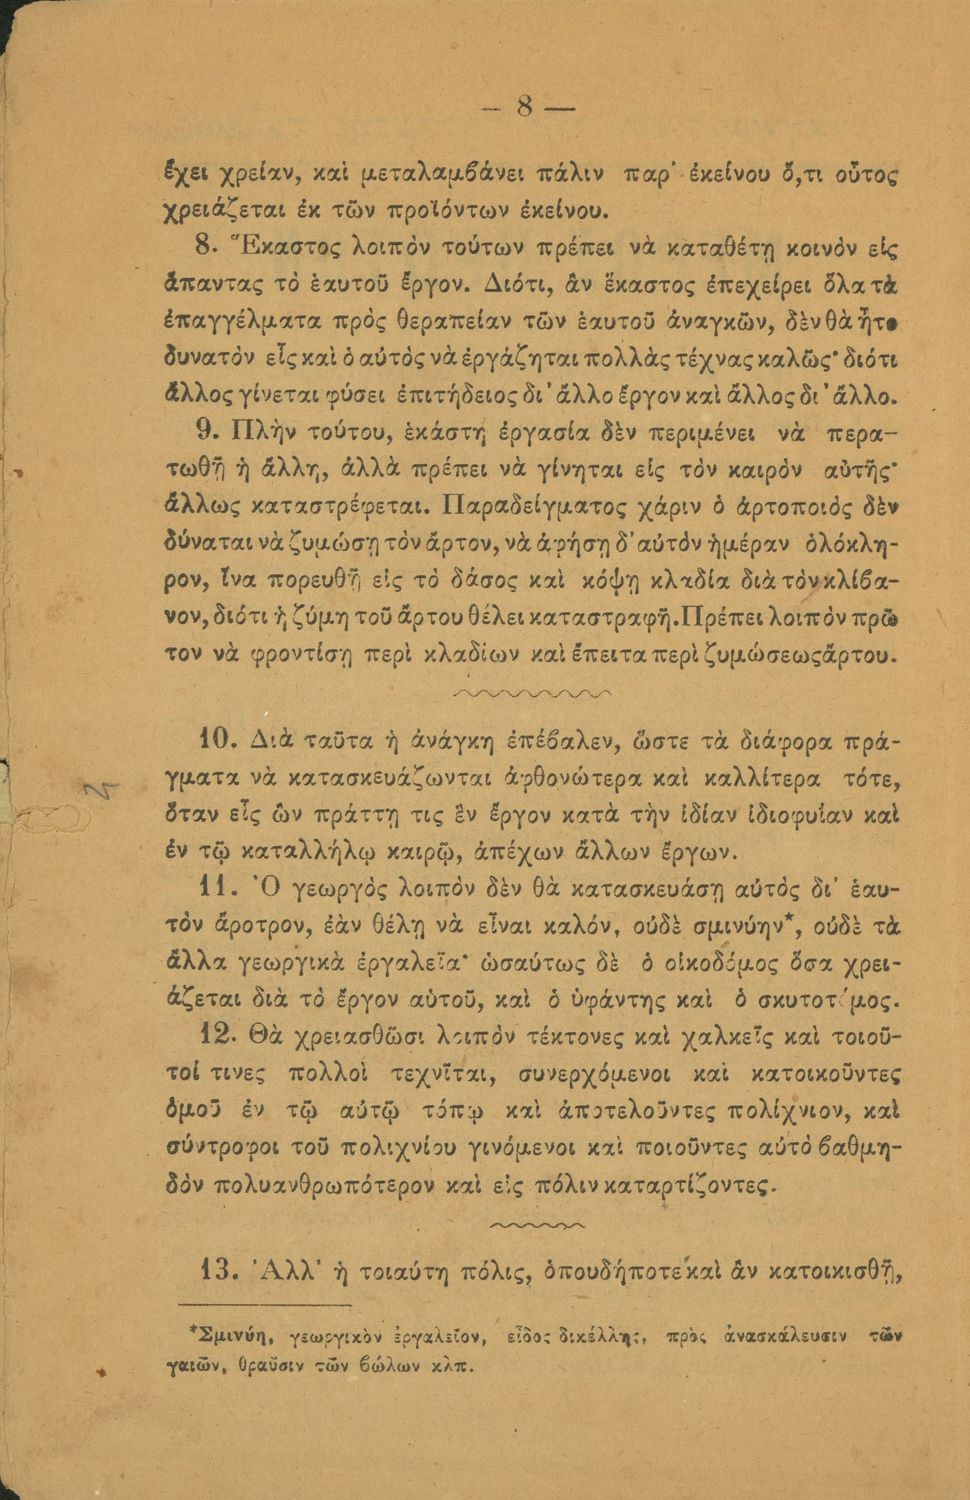 — 8 —
ἔχει χρείαν, καὶ μεταλαμβάνει πάλιν παρ' ἐκείνου ὅ,τι οὗτος
χρειάζεται ἐκ τῶν προϊόντων ἐκείνου.
8. Ἕκαστος λοιπὸν τούτων πρέπει νὰ καταθέτῃ κοινὸν εἰς
ἅπαντας τὸ ἑαυτοῦ ἔργον. Διότι, ἂν ἕκαστος ἐπεχείρει ὅλα τὰ
ἐπαγγέλματα πρὸς θεραπείαν τῶν ἑαυτοῦ ἀναγκῶν, δὲν θὰ ἦτο
δυνατὸν εἷς καὶ ὁ αὐτὸς νὰ ἐργάζηται πολλὰς τέχνας καλῶς· διότι
ἄλλος γίνεται φύσει ἐπιτήδειος δι' ἄλλο ἔργον καὶ ἄλλος δι' ἄλλο.
9. Πλὴν τούτου, ἑκάστη ἐργασία δὲν περιμένει νὰ περα-
τωθῇ ἡ ἄλλη, ἀλλὰ πρέπει νὰ γίνηται εἰς τὸν καιρὸν αὐτῆς·
ἄλλως καταστρέφεται. Παραδείγματος χάριν ὁ ἀρτοποιὸς δὲν
δύναται νὰ ζυμώσῃ τὸν ἄρτον, νὰ ἀφήσῃ δ' αὐτὸν ἡμέραν ὁλόκλη-
ρον, ἵνα πορευθῇ εἰς τὸ δάσος καὶ κόψῃ κλαδία διὰ τὸν κλίβα-
νον, διότι ἡ ζύμη τοῦ ἄρτου θέλει καταστραφῆ. Πρέπει λοιπὸν πρῶ
τον νὰ φροντίσῃ περὶ κλαδίων καὶ ἔπειτα περὶ ζυμώσεως ἄρτου.
10. Διὰ ταῦτα ἡ ἀνάγκη ἐπέβαλεν, ὥστε τὰ διάφορα πρά-
γματα νὰ κατασκευάζωνται ἀφθονώτερα καὶ καλλίτερα τότε,
ὅταν εἷς ὢν πράττῃ τις ἓν ἔργον κατὰ τὴν ἰδίαν ἰδιοφυΐαν καὶ
ἐν τῷ καταλλήλῳ καιρῷ, ἀπέχων ἄλλων ἔργων.
11. Ὁ γεωργὸς λοιπὸν δὲν θὰ κατασκευάσῃ αὐτὸς δι' ἑαυ-
τὸν ἄροτρον, ἐὰν θέλῃ νὰ εἶναι καλόν, οὐδὲ σμινύην*, οὐδὲ τὰ
ἄλλα γεωργικὰ ἐργαλεῖα· ὡσαύτως δὲ ὁ οἰκοδόμος ὅσα χρει-
άζεται διὰ τὸ ἔργον αὑτοῦ, καὶ ὁ ὑφάντης καὶ ὁ σκυτοτόμος.
12. Θὰ χρειασθῶσι λοιπὸν τέκτονες καὶ χαλκεῖς καὶ τοιοῦ-
τοί τινες πολλοὶ τεχνῖται, συνερχόμενοι καὶ κατοικοῦντες
ὁμοῦ ἐν τῷ αὐτῷ τόπῳ καὶ ἀποτελοῦντες πολίχνιον, καὶ
σύντροφοι τοῦ πολιχνίου γινόμενοι καὶ ποιοῦντες αὐτὸ βαθμη-
δὸν πολυανθρωπότερον καὶ εἰς πόλιν καταρτίζοντες.
13. Ἀλλ' ἡ τοιαύτη πόλις, ὁπουδήποτε καὶ ἂν κατοικισθῇ,
*Σμινύη, γεωργικὸν ἐργαλεῖον, εἶδος δικέλλης, πρὸς ἀνασκάλευσιν τῶν
γαιῶν, θραῦσιν τῶν βώλων κλπ.